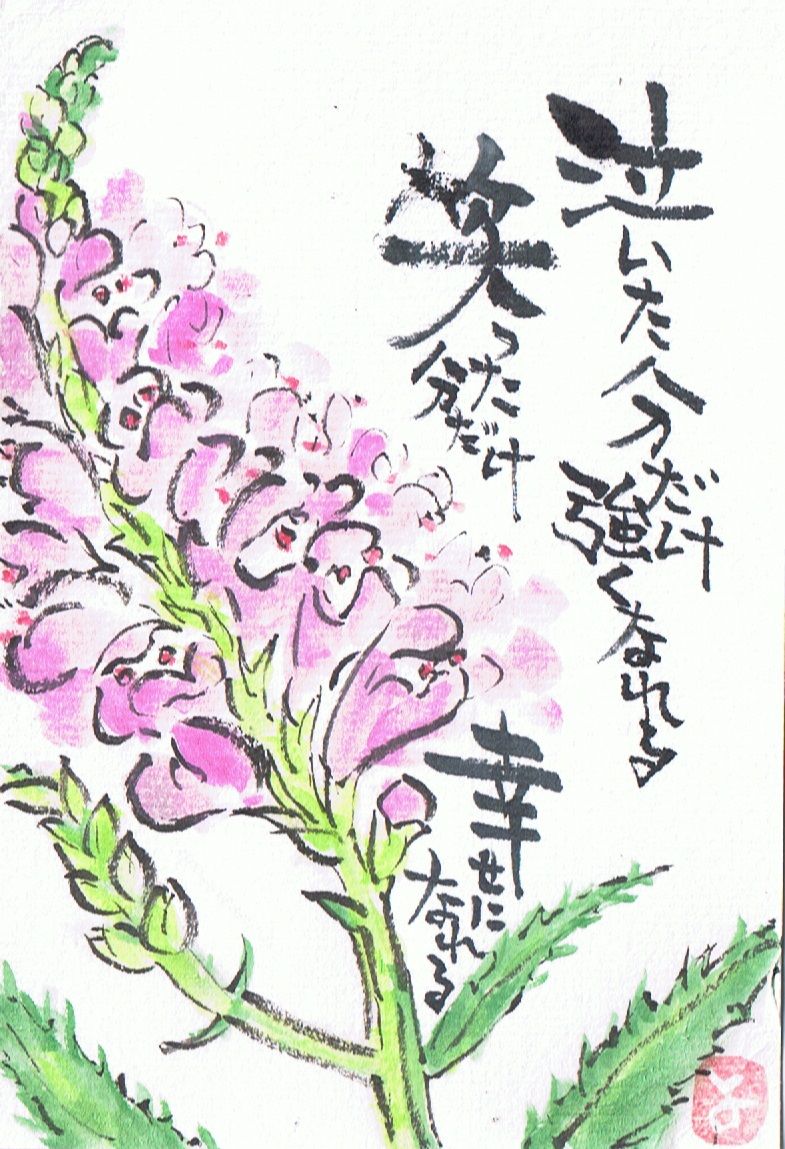 泣いた分だけ
強くなれる
笑った
分だけ
幸せに
なれる
と